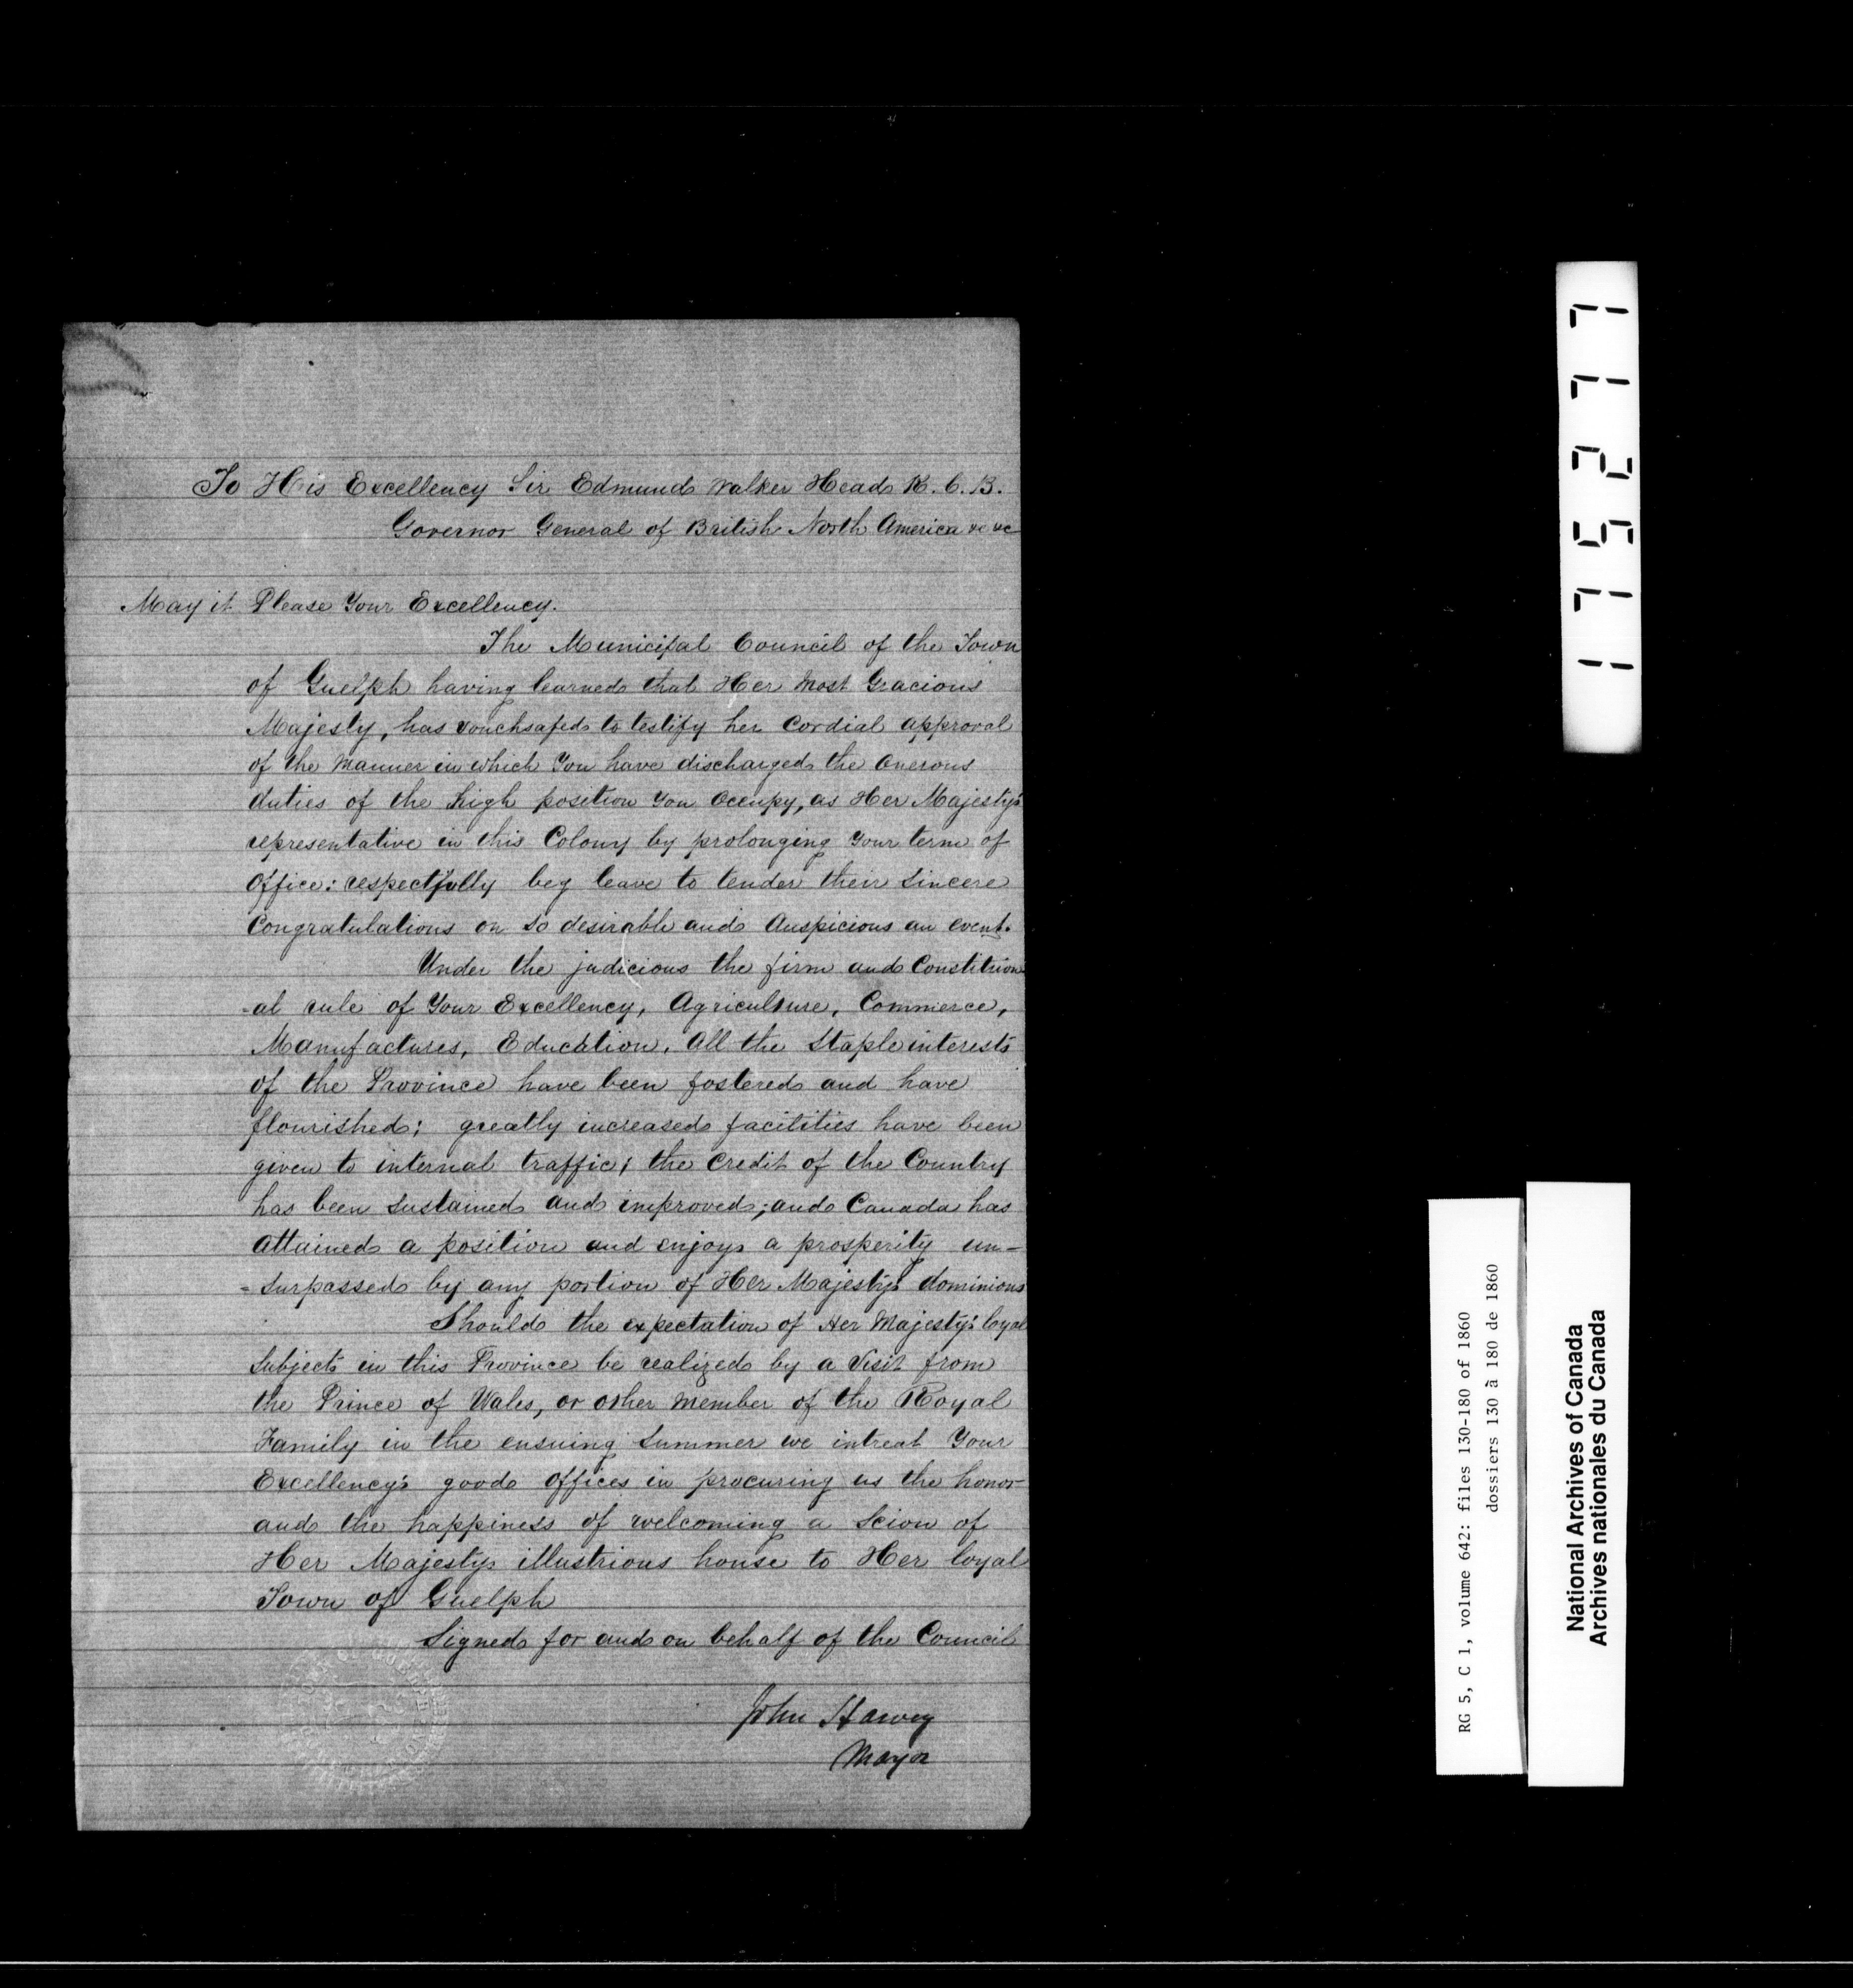 To His Excellency Sir Edmund Walker Head K. C. B.
Governor General of British North America &c &c
May it Please Your Excellency.
The Municipal Council of the Town
of Guelph having learned that Her Most Gracious
Majesty, has vouchsafed to testify her Cordial approval
of the Manner in which You have discharged the Onerous
duties of the high position You Occupy, as Her Majesty's
representative in this Colony by prolonging Your term of
Office: respectfully beg leave to tender their Sincere
Congratulations on so desirable and Auspicious an event.
Under the judicious the firm and Constitution
-al rule of Your Excellency, Agriculture, Commerce,
Manufactures, Education, All the Staple interests
of the Province have been fostered and have
flourished; greatly increased facilities have been
given to internal traffic; the Credit of the Country
has been Sustained and improved; and Canada has
Attained a position and enjoys a prosperity un-
=surpassed by any portion of Her Majesty's dominions
Should the expectation of Her Majesty's loyal
Subjects in this Province be realized by a Visit from
the Prince of Wales, or other Member of the Royal
Family in the ensuing Summer we intreat Your
Excellency's good Offices in procuring us the honor
and the happiness of welcoming a Scion of
Her Majestys illustrious house to Her loyal
Town of Guelph
Signed for and on behalf of the Council
John Harvey
Mayor
175277
RG 5, C 1, volume 642: files 130-180 of 1860
dossiers 130 à 180 de 1860
National Archives of Canada
Archives nationales du Canada